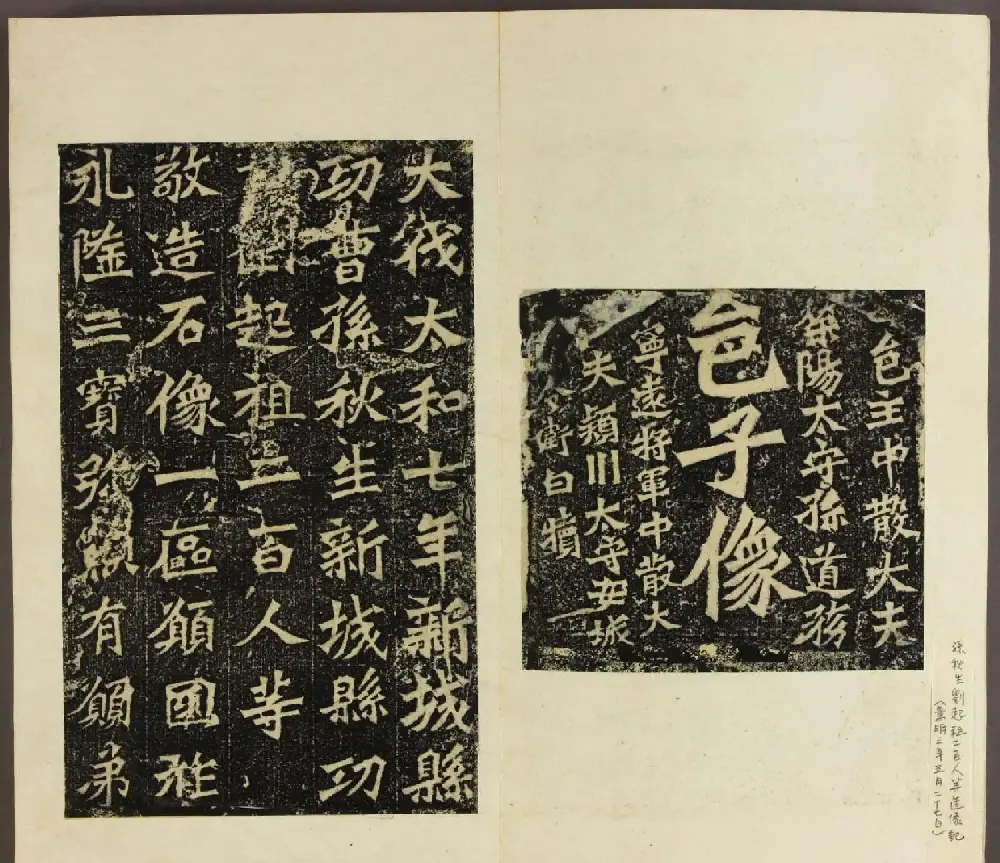 孫秋生劉起祖二百人等造像記
（景明三年五月二十七日）
邑主中散大夫
滎陽太守孫道務
邑子像
寧遠將軍中散大
夫頴川太守安城
令衛白犢
大代太和七年新城縣
功曹孫秋生新城縣功
劉起祖二百人等
敬造石像一區願國祚
永隆三寶弥顯有願弟